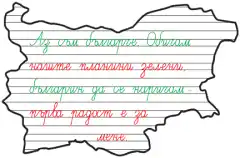 Аз съм българче. Обичам
нашите планини зелени,
българин да се наричам -
първа радост е за
мене.